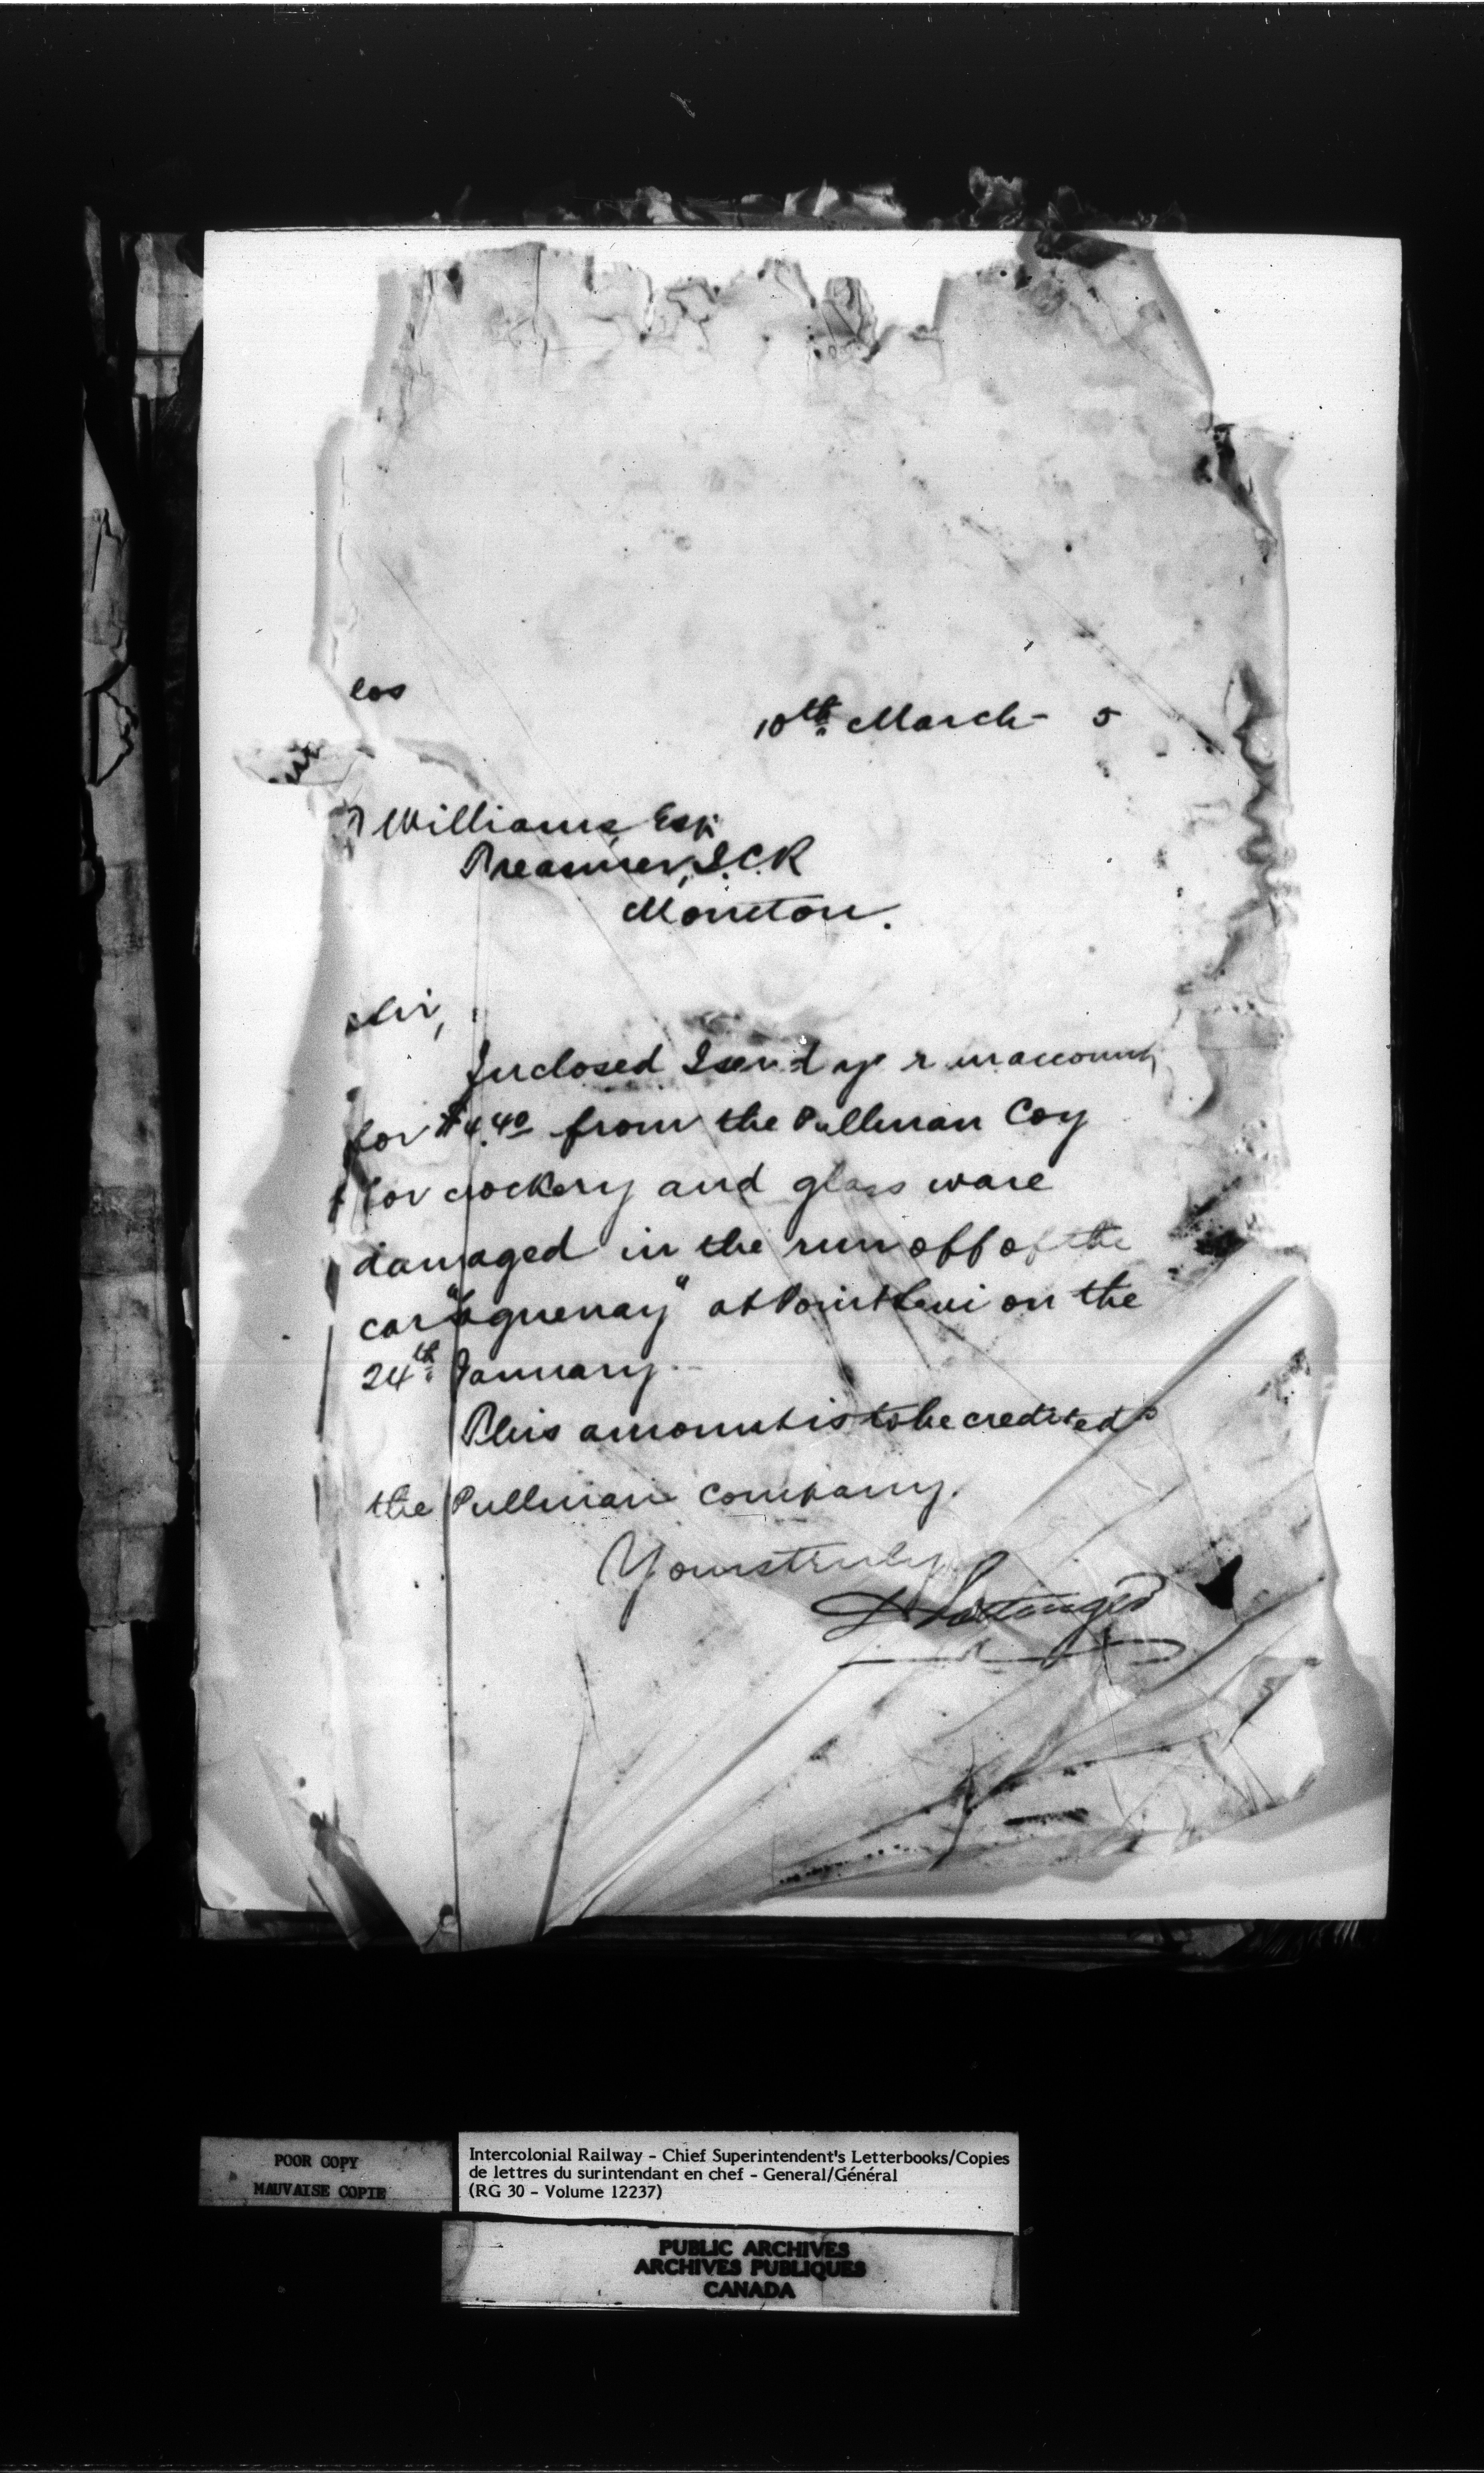 10th March - 5
Williams, Esq.
Treasurer, I.C.R
Moncton.
Sir,
Inclosed I send an account
for $4.40 from the Pullman Coy
for crockery and glass ware
damaged in the run off of the
car "aguenay" at Point Levi on the
24th January.
This amount is to be credited
the Pullman Company.
Yours truly
D Pottinger
POOR COPY
MAUVAISE COPIE
Intercolonial Railway - Chief Superintendent's Letterbooks/Copies
de lettres du surintendant en chef - General/Général
(RG 30 - Volume 12237)
PUBLIC ARCHIVES
ARCHIVES PUBLIQUES
CANADA